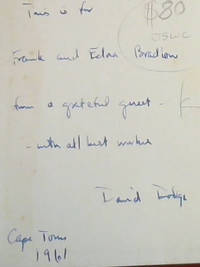 This is for
$80
Frank and Edna Bradlow
from a grateful guest -
- with all best wishes
David Dodge
Cape Town
1961